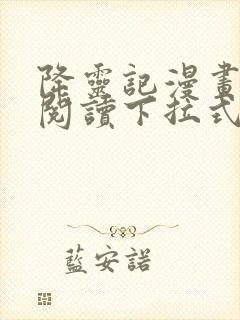 降靈記漫畫
閱讀下拉式
藍安諾